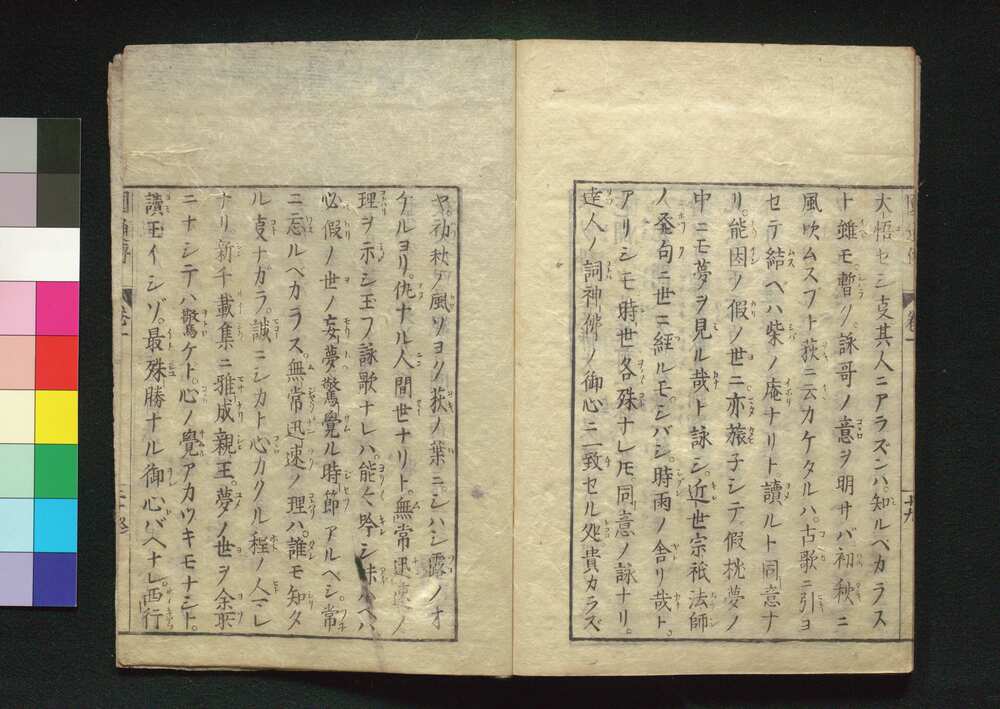 大悟セシ支其人ニアラズンハ知ルベカラス
ト雖モ暫ク詠哥ノ意ヲ明サバ初秧ニ
風吹ムスフト荻ニ云カケタルハ。古歌ニ引ヨ
セテ結ヘハ柴ノ庵ナリト。讀ルト同意ナ
リ。能因ノ假ノ世ニ亦旅子シテ假枕夢ノ
中ニモ夢ヲ見ル哉ト詠シ。近世宗祇法師
ノ発句ニ世ニ經ルモ。シバシ時雨ノ舎リ哉ト。
アリシモ時世各殊ナレ𪜈。同意ノ詠ナリ。
達人ノ詞神佛ノ御心ニ一致セル処貴カラズ
ヤ。初秋ノ風ソヨク荻ノ葉ニシハシ露ノオ
ケルヨリ。仇ナル人間世ナリト。無常迅速ノ
理ヲ示シ玉フ詠歌ナレハ。能々吟シ味ルヘハ
必假ノ世ノ妄夢驚覺ル時節アルヘシ。常
ニ忘ルヘカラス。無常迅速ノ理ハ。誰モ知タ
ル支ナガラ。誠ニシカト心カクル程ノ人マレ
ナリ新千載集ニ雅成親王。夢ノ世ヲ余所
ニナシテハ驚ケト。心ノ覺アカツキモナシト。
讀玉イシゾ。最殊勝ナル御心バヘナレ。西行
卷一